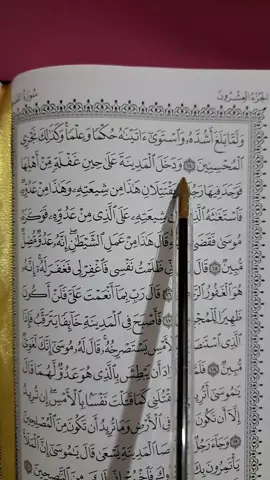 الجزء العشرون سورة
ولما بلغ أشده واستوى ءاتينه حكما وعلما وكذلك نجزى
المحسنين ١٤ ودخل المدينة على حين غفلة من أهلها
فوجد فيها يقتتلان هذا من شيعته وهذا من عدوه
فاستغثه من شيعته على الذى من عدوه فوكزه
موسى فقضى قال هذا من عمل الشيطن إنه عدو مضل
مبين ١٥ قال ظلمت نفسى فاغفر لى فغفر له إنه
هو الغفور قال رب بما أنعمت على فلن أكون
ظهيرا للمجر فأصبح فى المدينة خائفا يترقب فإذا
الذى استنصره بالأمس يستصرخه قال له موسى إنك لغوى
مبين ١٨ أراد أن يبطش بالذى هو عدو لهما قال
يموسى أتريد تقتلنى كما قتلت نفسا بالأمس إن تريد
إلا أن تكون فى الأرض وما تريد أن تكون من المصلحين
١٩ وجاء رجل أقصا المدينة يسعى قال يموسى إن الملأ
يأتمرون بك لك من النصحين